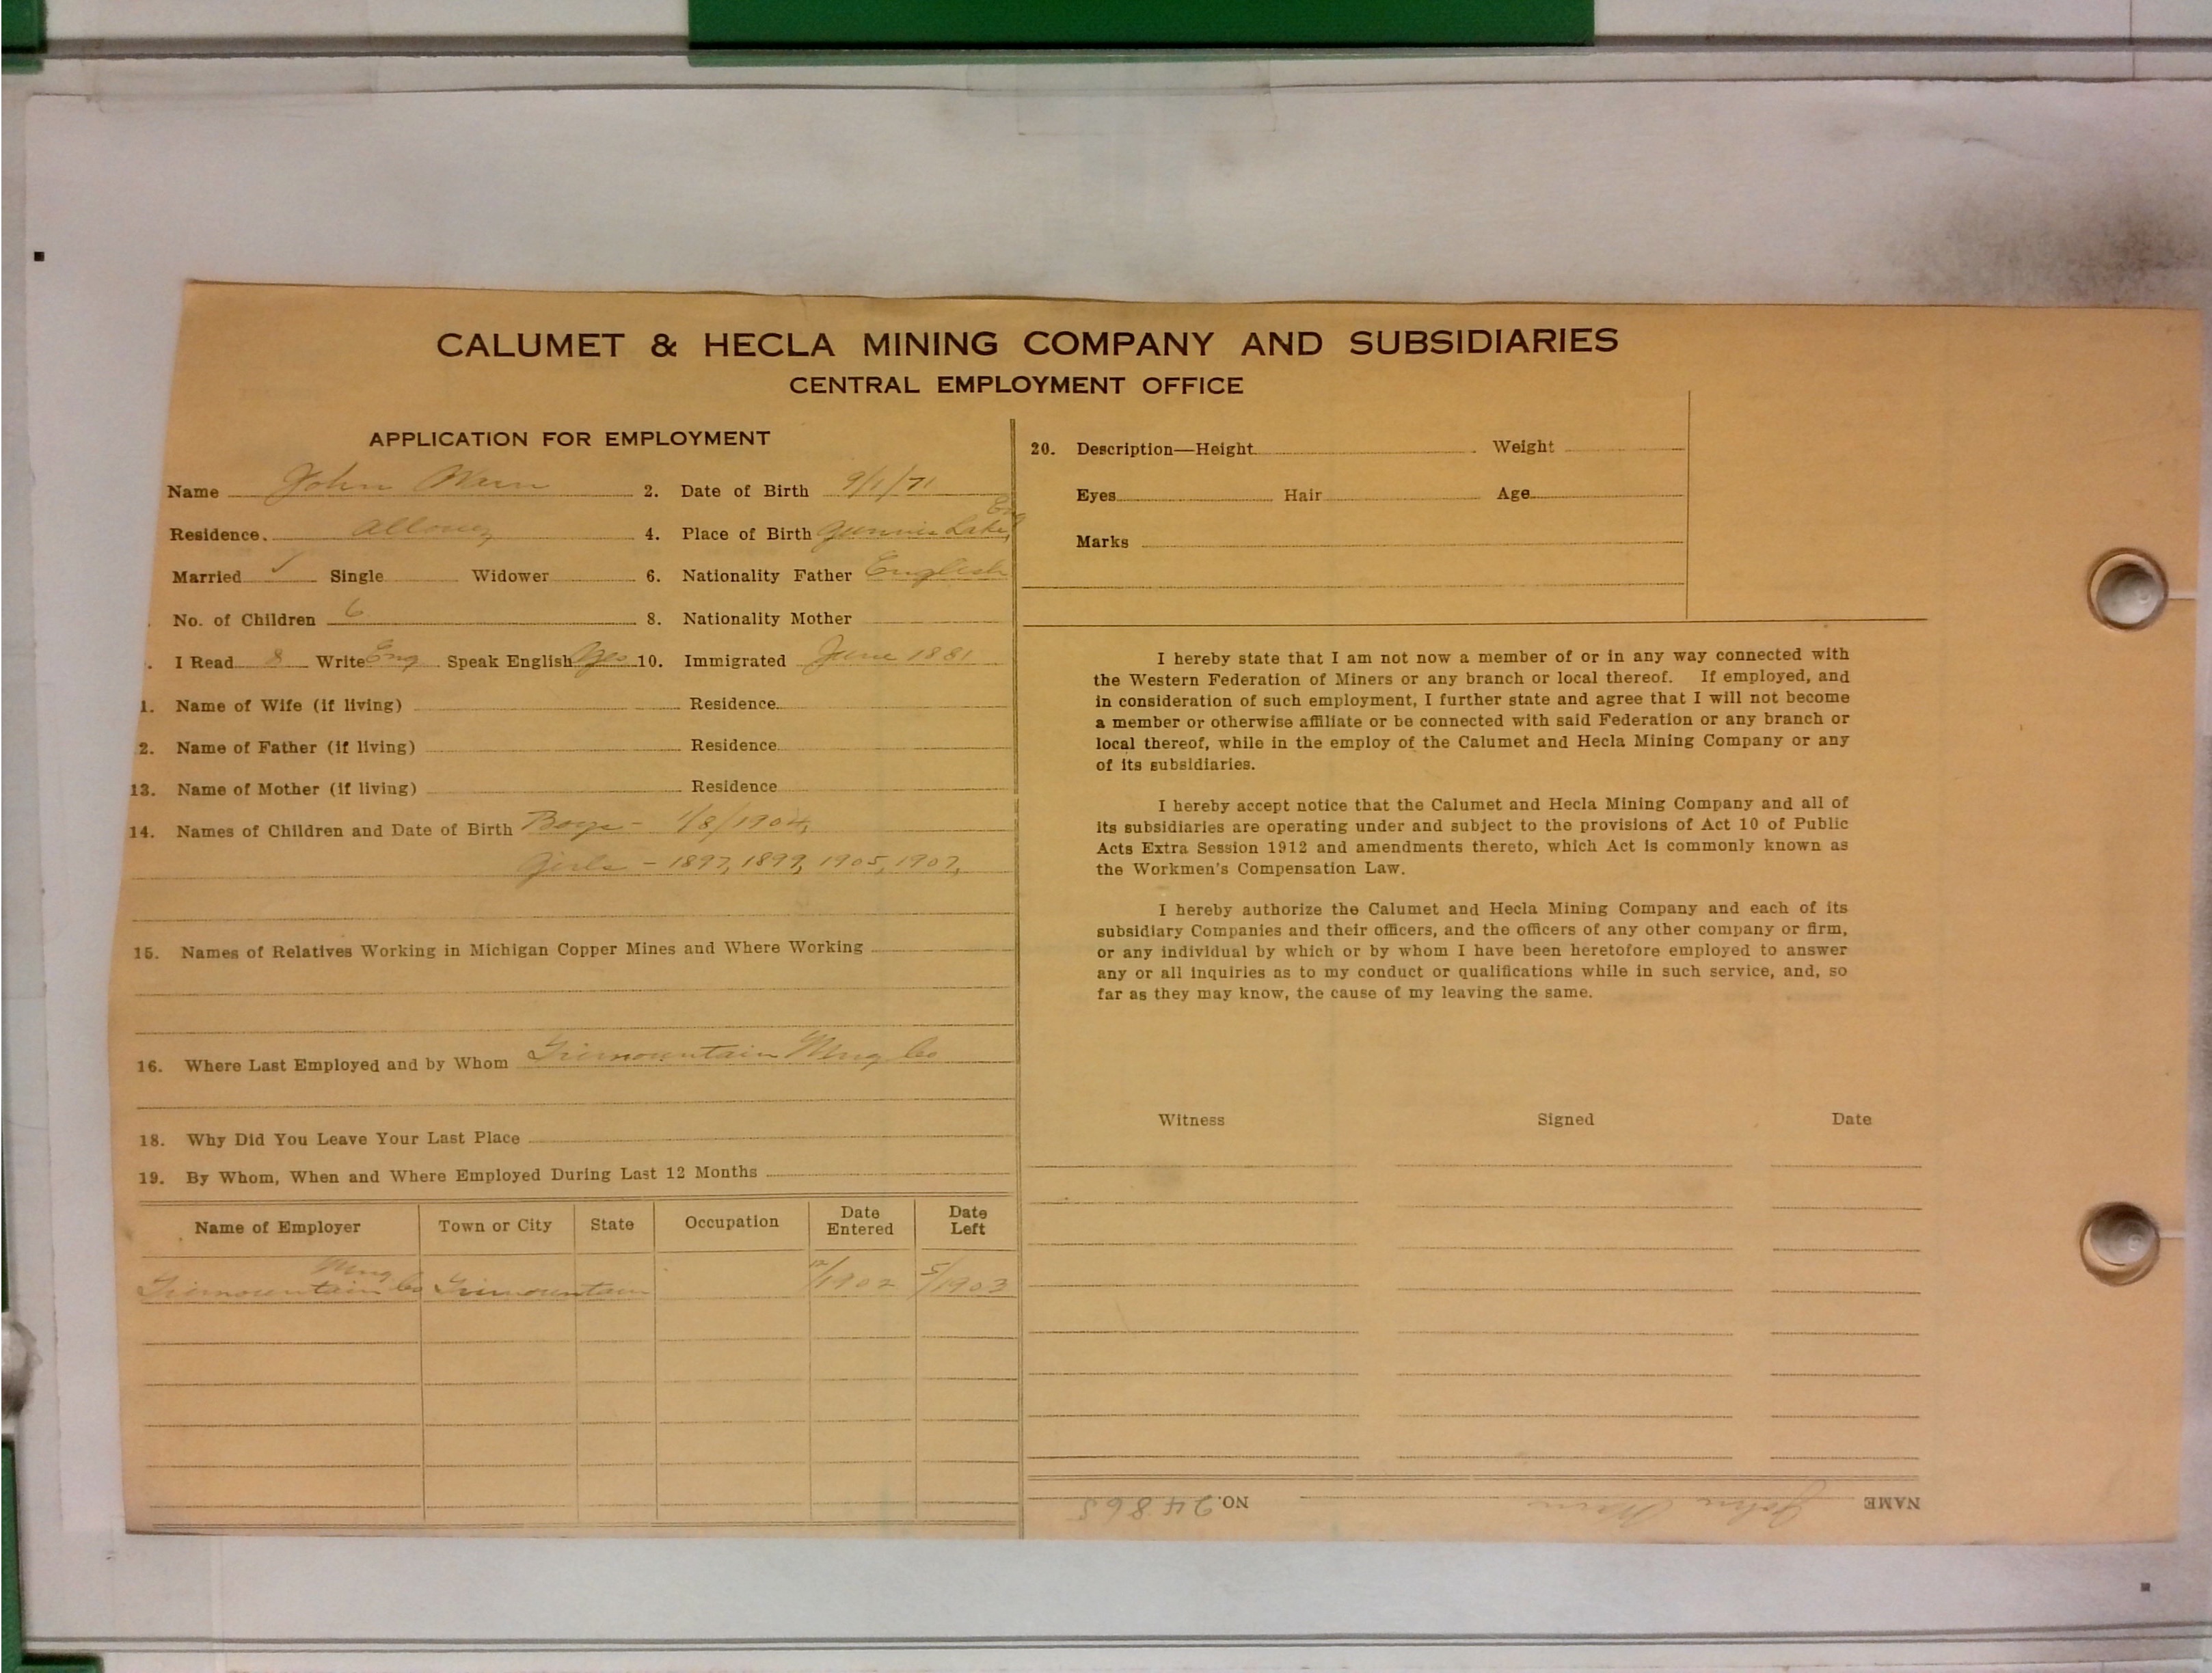 CALUMET & HECLA MINING COMPANY AND SUBSIDIARIES
CENTRAL EMPLOYMENT OFFICE
APPLICATION FOR EMPLOYMENT
Name John 2. Date of Birth 9/1/71
Residence. Allouez 4. Place of Birth Gunnis Lake, Eng
Married ✓ Single Widower 6. Nationality Father English
No. of Children 6 8. Nationality Mother
I Read & Write Eng Speak English Yes 10. Immigrated June 1881
1. Name of Wife (if living) Residence
2. Name of Father (if living) Residence
13. Name of Mother (if living) Residence
14. Names of Children and Date of Birth Boys - 1/8/1904,
Girls - 1897, 1899, 1905, 1907,
15. Names of Relatives Working in Michigan Copper Mines and Where Working
16. Where Last Employed and by Whom Trimountain Mng Co
18. Why Did You Leave Your Last Place
19. By Whom, When and Where Employed During Last 12 Months
Name of Employer Town or City State Occupation Date Entered Date Left
Trimountain Mng Co Trimountain 12/1902 5/1903
20. Description—Height Weight
Eyes Hair Age
Marks
I hereby state that I am not now a member of or in any way connected with
the Western Federation of Miners or any branch or local thereof. If employed, and
in consideration of such employment, I further state and agree that I will not become
a member or otherwise affiliate or be connected with said Federation or any branch or
local thereof, while in the employ of the Calumet and Hecla Mining Company or any
of its subsidiaries.
I hereby accept notice that the Calumet and Hecla Mining Company and all of
its subsidiaries are operating under and subject to the provisions of Act 10 of Public
Acts Extra Session 1912 and amendments thereto, which Act is commonly known as
the Workmen's Compensation Law.
I hereby authorize the Calumet and Hecla Mining Company and each of its
subsidiary Companies and their officers, and the officers of any other company or firm,
or any individual by which or by whom I have been heretofore employed to answer
any or all inquiries as to my conduct or qualifications while in such service, and, so
far as they may know, the cause of my leaving the same.
Witness Signed Date
NAME John NO. 24865